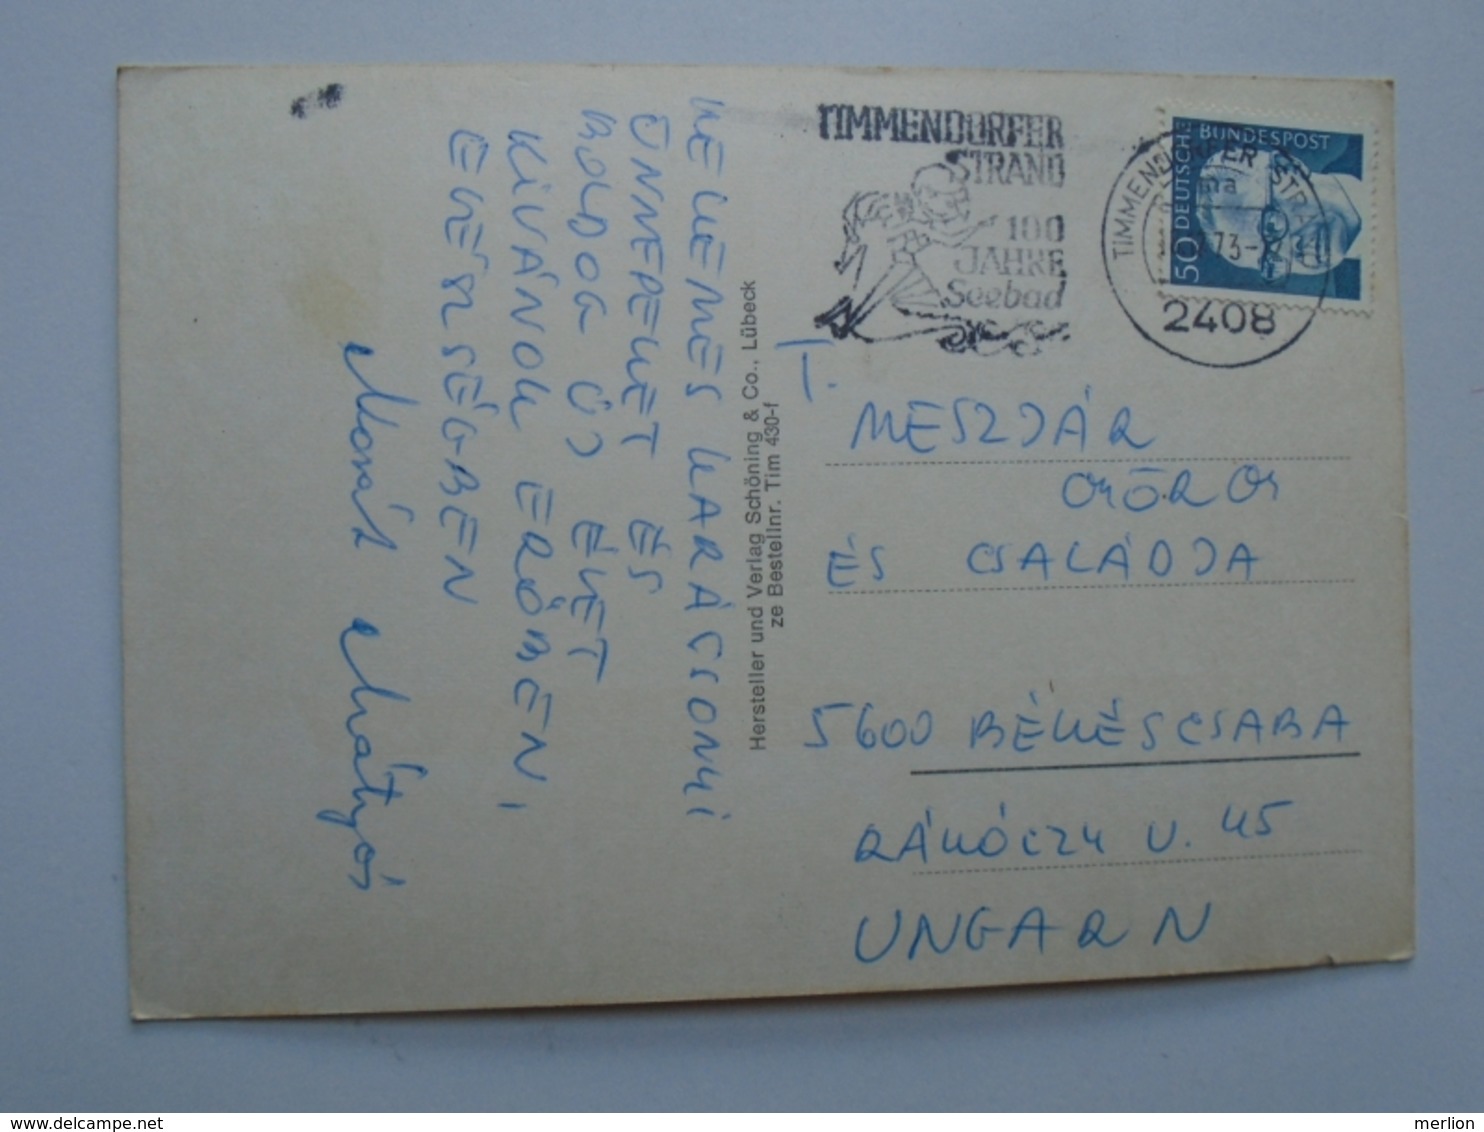 KELLEMES KARÁCSONYI
ÜNNEPEKET ÉS
BOLDOG ÚJ ÉVET
KIVÁNOK ERŐBEN,
EGÉSZSÉGBEN
Mátyás
Hersteller und Verlag Schöning & Co., Lübeck
ze Bestellnr. Tim 430-f
TIMMENDORFER
STRAND
100
JAHRE
Seebad
TIMMENDORFER STRAND
73
2408
DEUTSCHE BUNDESPOST
50
T.
MESZJÁR
GYÖRGY
ÉS CSALÁDJA
5600 BÉKÉSCSABA
RÁKÓCZY U. 45
UNGARN
merlion